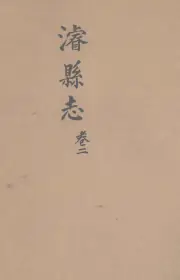 濬縣志
卷二